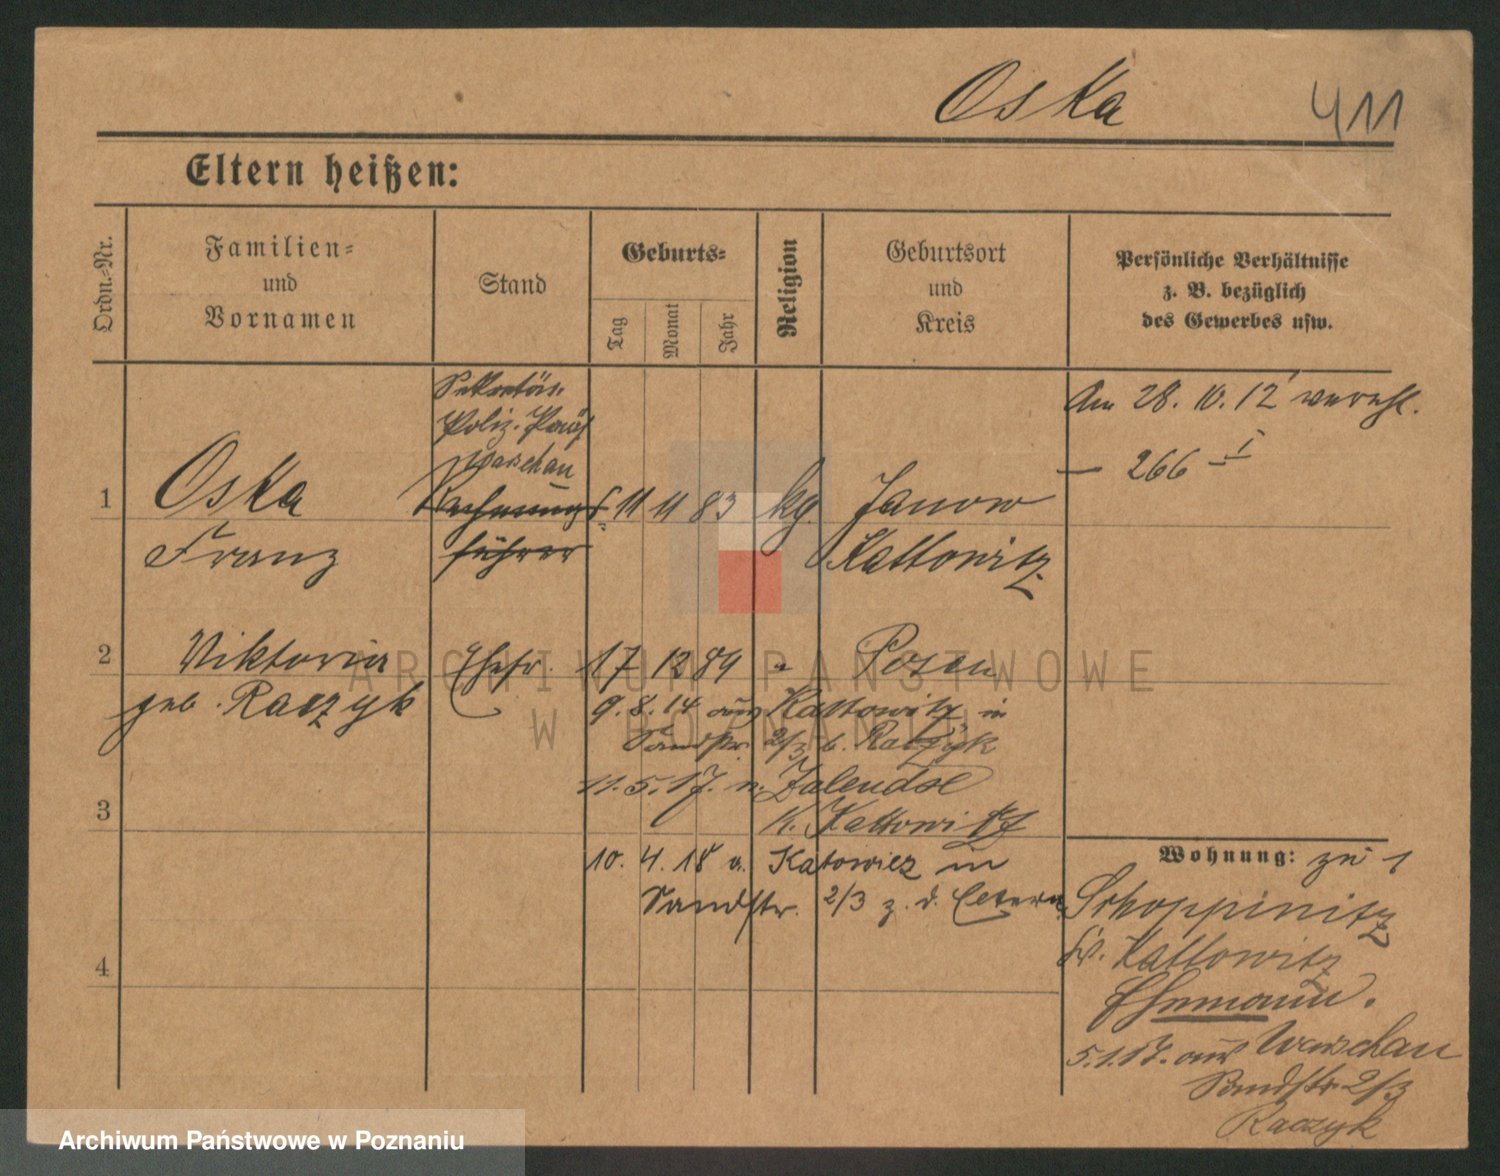 Oska 411
Eltern heißen:
Ordn.-Nr.
Familien-
und
Vornamen
Stand
Geburts-
Tag
Monat
Jahr
Religion
Geburtsort
und
Kreis
Persönliche Verhältnisse
z. B. bezüglich
des Gewerbes usw.
1
Oska
Franz
Sekretär
Poliz. Präs
Warschau
Rechnungs
führer
11 11 83
kg.
Janow
Kattowitz
Am 28. 10. 12 verehl.
— 266 — I
2
Viktoria
geb. Raczyk
Ehefr.
17 12 89 "
Posen
9. 8. 14 aus Kattowitz in
Sandstr. 2/3 b. Raczyk
11. 5. 17. n. Zalendse
K. Kattowitz
3
10. 4. 18 v. Katowicz in
Sandstr. 2/3 z. d. Eltern
4
Wohnung: zu 1
Schoppinitz
Kr. Kattowitz
Ehemann.
5. 1. 17. aus Warschau
Sandstr. 2/3
Raczyk
ARCHIWUM PAŃSTWOWE
W POZNANIU
Archiwum Państwowe w Poznaniu